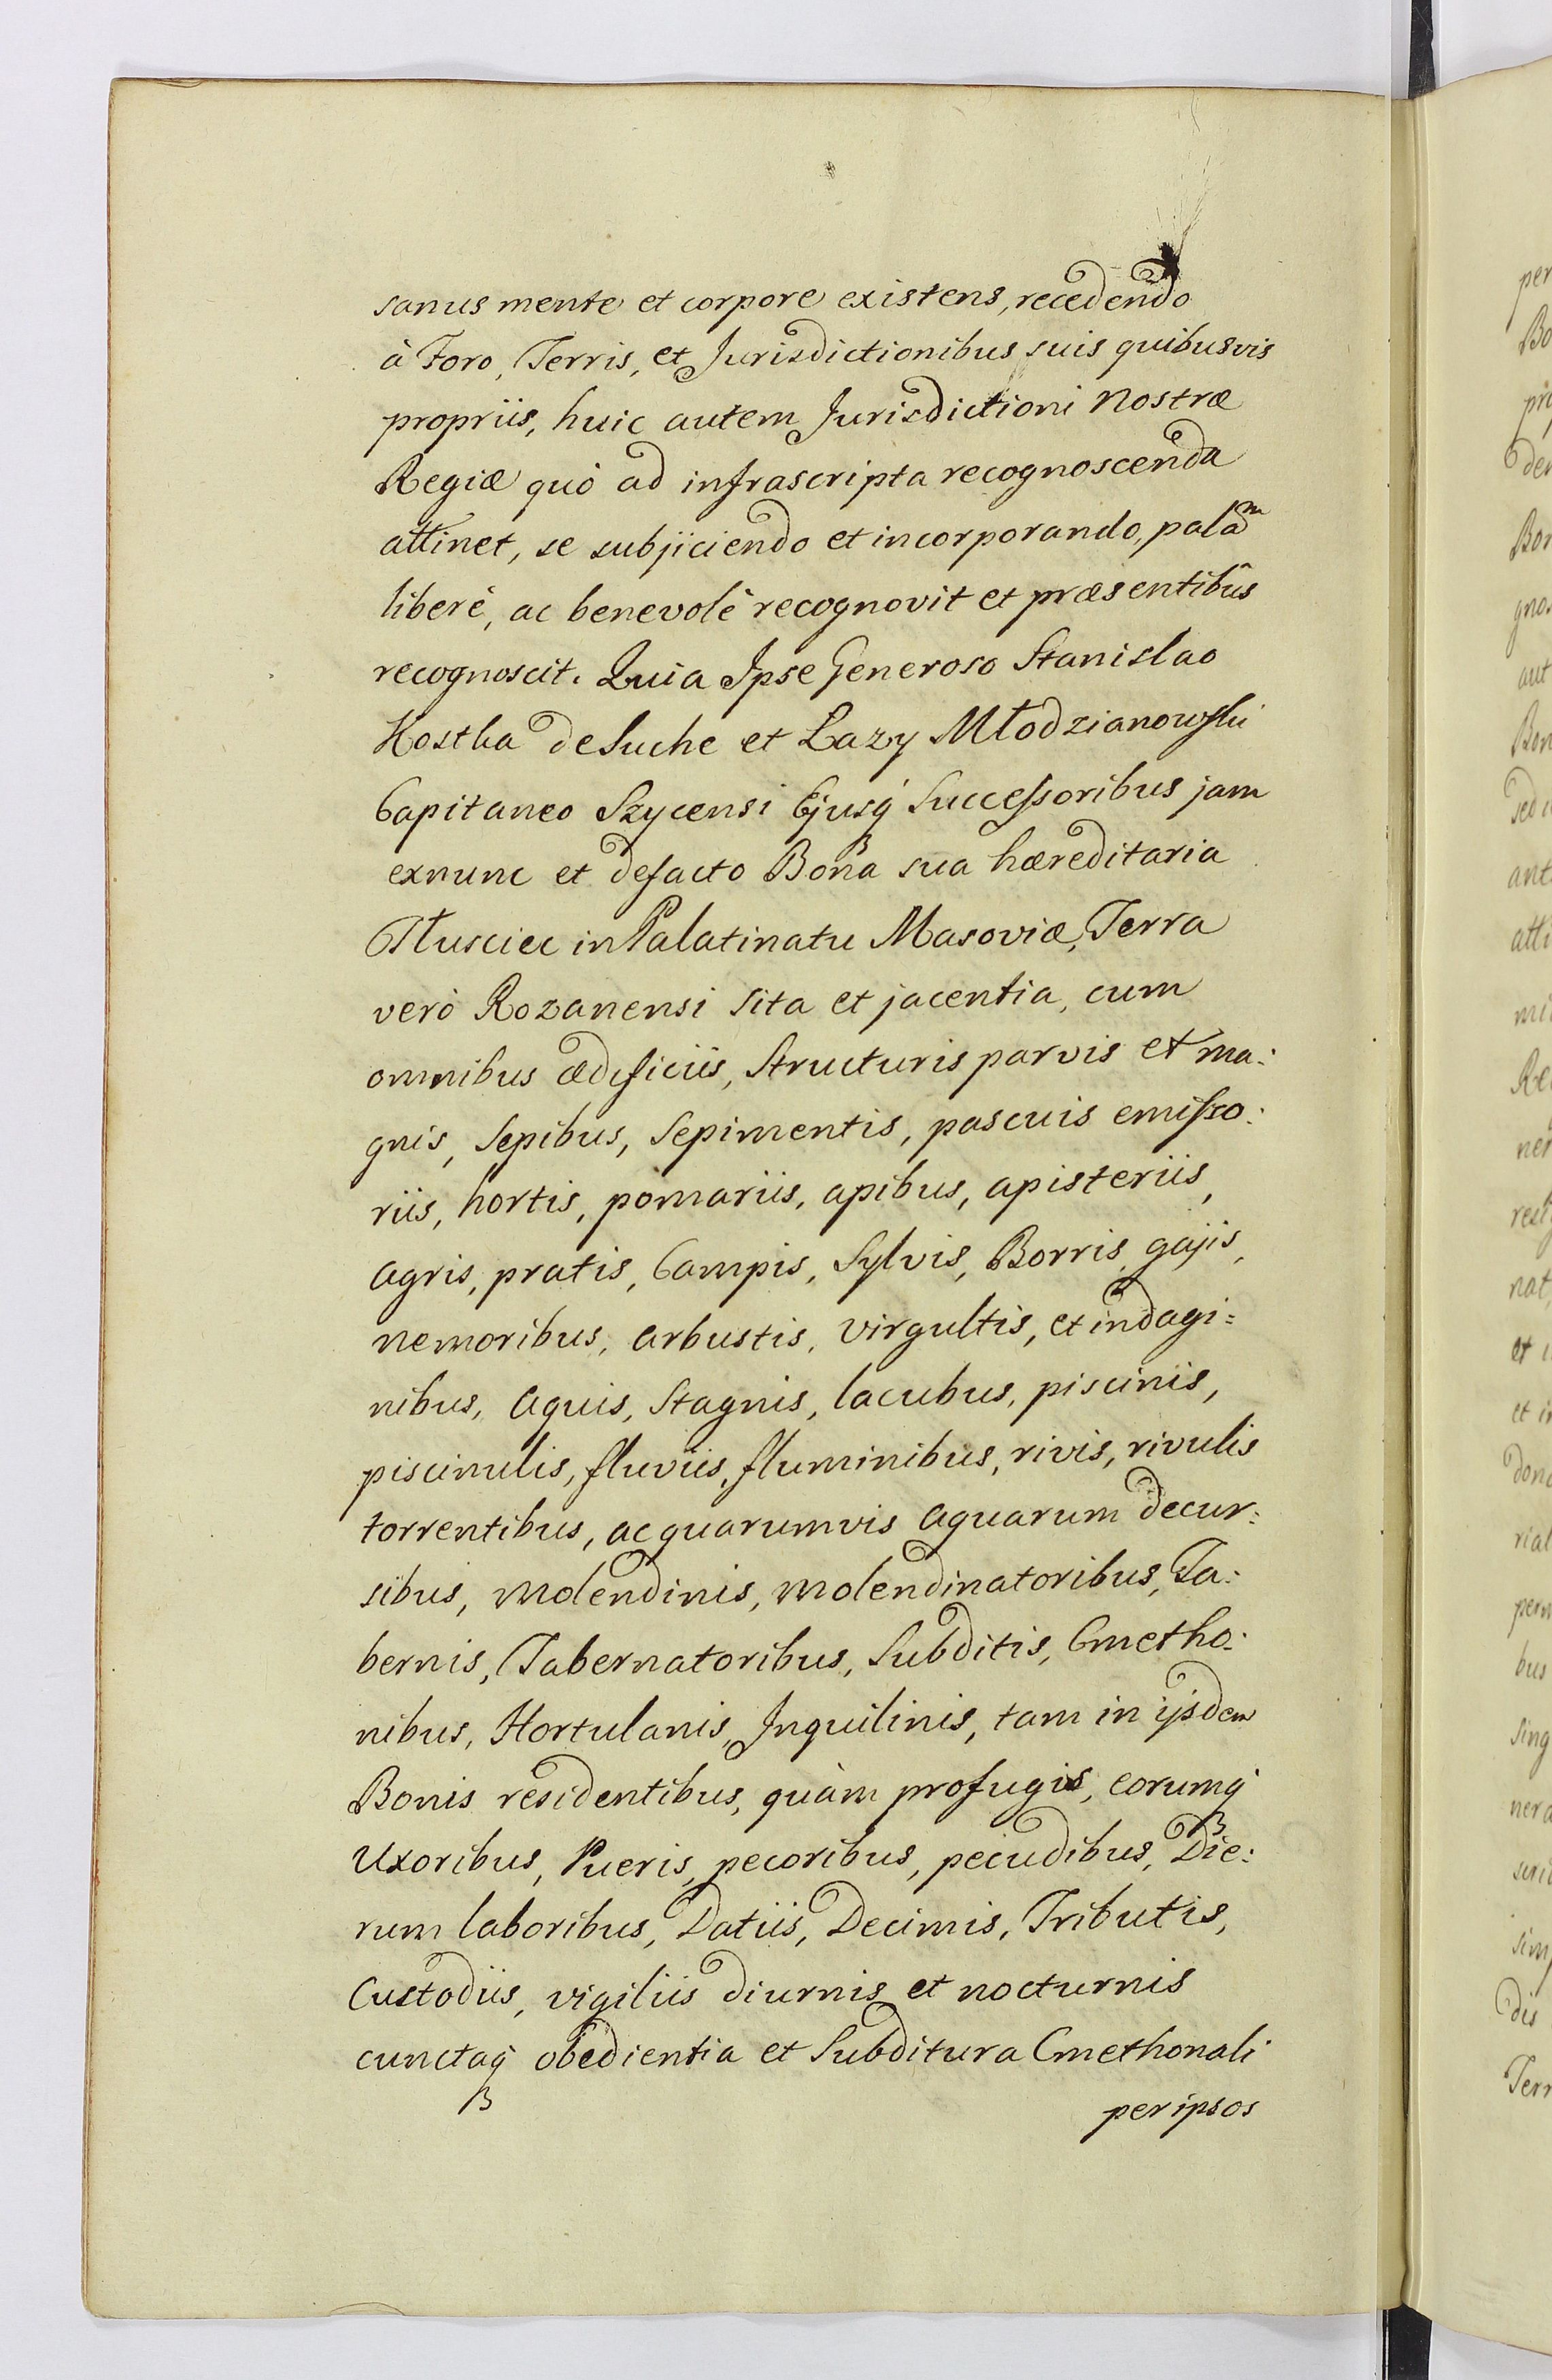 sanus mente et corpore existens, recedendo
à Foro, Terris, et Jurisdictionibus suis quibusvis
propriis, huic autem Jurisdictioni Nostræ
Regiæ quò ad infrascripta recognoscenda
attinet, se subjiciendo et incorporando, palàm
liberè, ac benevolè recognovit et præsentibûs
recognoscit. Quia Ipse Generoso Stanislao
Kostka de Suche et Łazy Młodzianowski
Capitaneo Szycensi Ejusq́ Successoribus jam
exnunc et defacto Bona sua hæreditaria
Tłusciec in Palatinatu Masoviæ, Terra
verò Rozanensi sita et jacentia, cum
omnibus ædificiis, Structuris parvis et ma:
gnis, Sepibus, Sepimentis, pascuis emisso:
riis, hortis, pomariis, apibus, apisteriis,
agris, pratis, Campis, Sylvis, Borris, gajis,
nemoribus, arbustis, virgultis, et indagi:
nibus, aquis, Stagnis, lacubus, piscinis,
piscinulis, fluviis, fluminibus, rivis, rivulis
torrentibus, ac quarumvis aquarum decur:
sibus, Molendinis, Molendinatoribus, Ta:
bernis, Tabernatoribus, Subditis, Cmetho:
nibus, Hortulanis, Inquilinis, tam in ijsdem
Bonis residentibus, quàm profugis, eorumq́
Uxoribus, Pueris, pecoribus, pecudibus, Die:
rum laboribus, Datiis, Decimis, Tributis,
Custodiis, vigiliis diurnis et nocturnis
cunctaq́ obedientia et Subditura Cmethonali
per ipsos